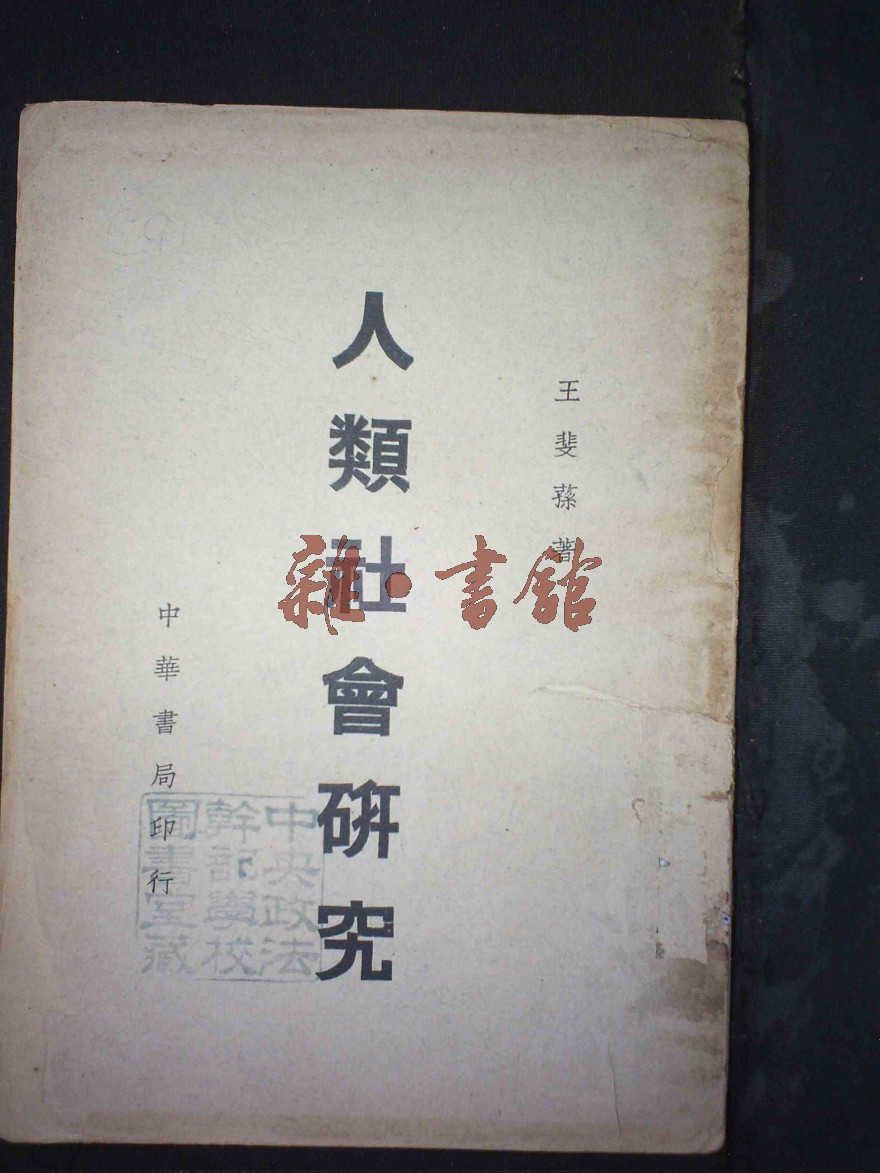 王斐蓀著
人類社會研究
中華書局印行
中央政法
幹部學校
圖書室藏
雜·書館